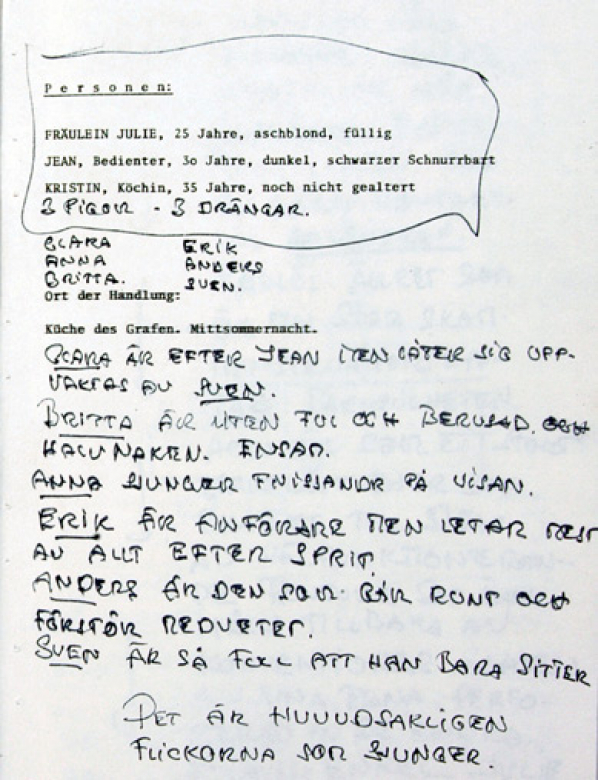 Personen:
FRÄULEIN JULIE, 25 Jahre, aschblond, füllig
JEAN, Bedienter, 3o Jahre, dunkel, schwarzer Schnurrbart
KRISTIN, Köchin, 35 Jahre, noch nicht gealtert
3 PIGOR - 3 DRÄNGAR.
CLARA ERIK
ANNA ANDERS
BRITTA. SVEN.
Ort der Handlung:
Küche des Grafen. Mittsommernacht.
CLARA ÄR EFTER JEAN MEN LÅTER SIG UPP-
VAKTAS AV SVEN.
BRITTA ÄR LITEN FUL OCH BERUSAD. OCH
HALVNAKEN. ENSAM.
ANNA SJUNGER FNISSANDE PÅ VISAN.
ERIK ÄR ANFÖRARE MEN LETAR MEST
AV ALLT EFTER SPRIT
ANDERS ÄR DEN SOM BÄR RUNT OCH
FÖRSTÖR MÖBLER.
SVEN ÄR SÅ FULL ATT HAN BARA SITTER
DET ÄR HUVUDSAKLIGEN
FLICKORNA SOM SJUNGER.